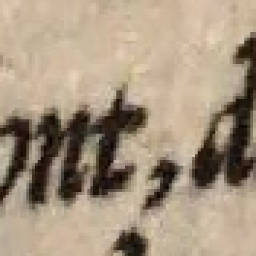 ont, d